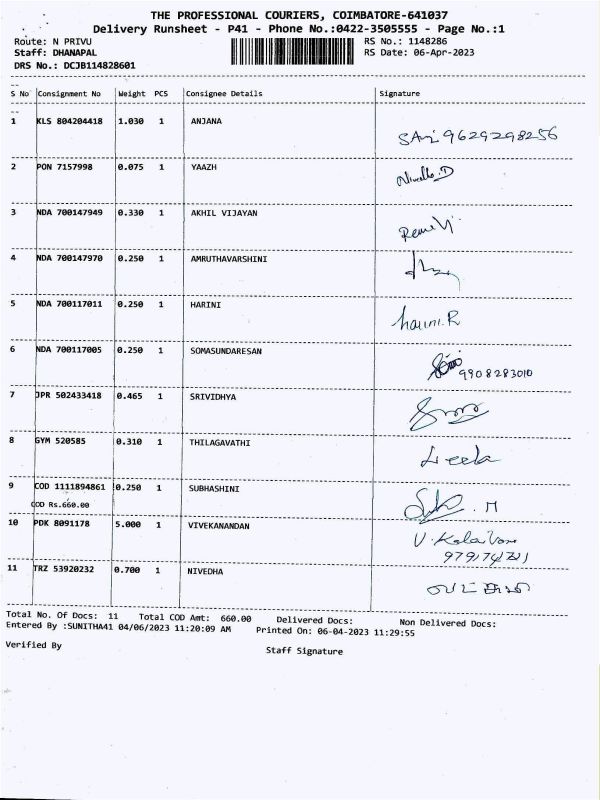 THE PROFESSIONAL COURIERS, COIMBATORE-641037
Delivery Runsheet - P41 - Phone No.:0422-3505555 - Page No.:1
Route: N PRIVU RS No.: 1148286
Staff: DHANAPAL RS Date: 06-Apr-2023
DRS No.: DCJB114828601
S No Consignment No Weight PCS Consignee Details Signature
1 KLS 804204418 1.030 1 ANJANA
9629298256
2 PON 7157998 0.075 1 YAAZH
3 NDA 700147949 0.330 1 AKHIL VIJAYAN
4 NDA 700147970 0.250 1 AMRUTHAVARSHINI
5 NDA 700117011 0.250 1 HARINI
harini.R
6 NDA 700117005 0.250 1 SOMASUNDARESAN
9908283010
7 JPR 502433418 0.465 1 SRIVIDHYA
8 GYM 520585 0.310 1 THILAGAVATHI
Leela
9 COD 1111894861 0.250 1 SUBHASHINI
COD Rs.660.00
10 PDK 8091178 5.000 1 VIVEKANANDAN
11 TRZ 53920232 0.700 1 NIVEDHA
Total No. Of Docs: 11 Total COD Amt: 660.00 Delivered Docs: Non Delivered Docs:
Entered By :SUNITHA41 04/06/2023 11:20:09 AM Printed On: 06-04-2023 11:29:55
Verified By Staff Signature